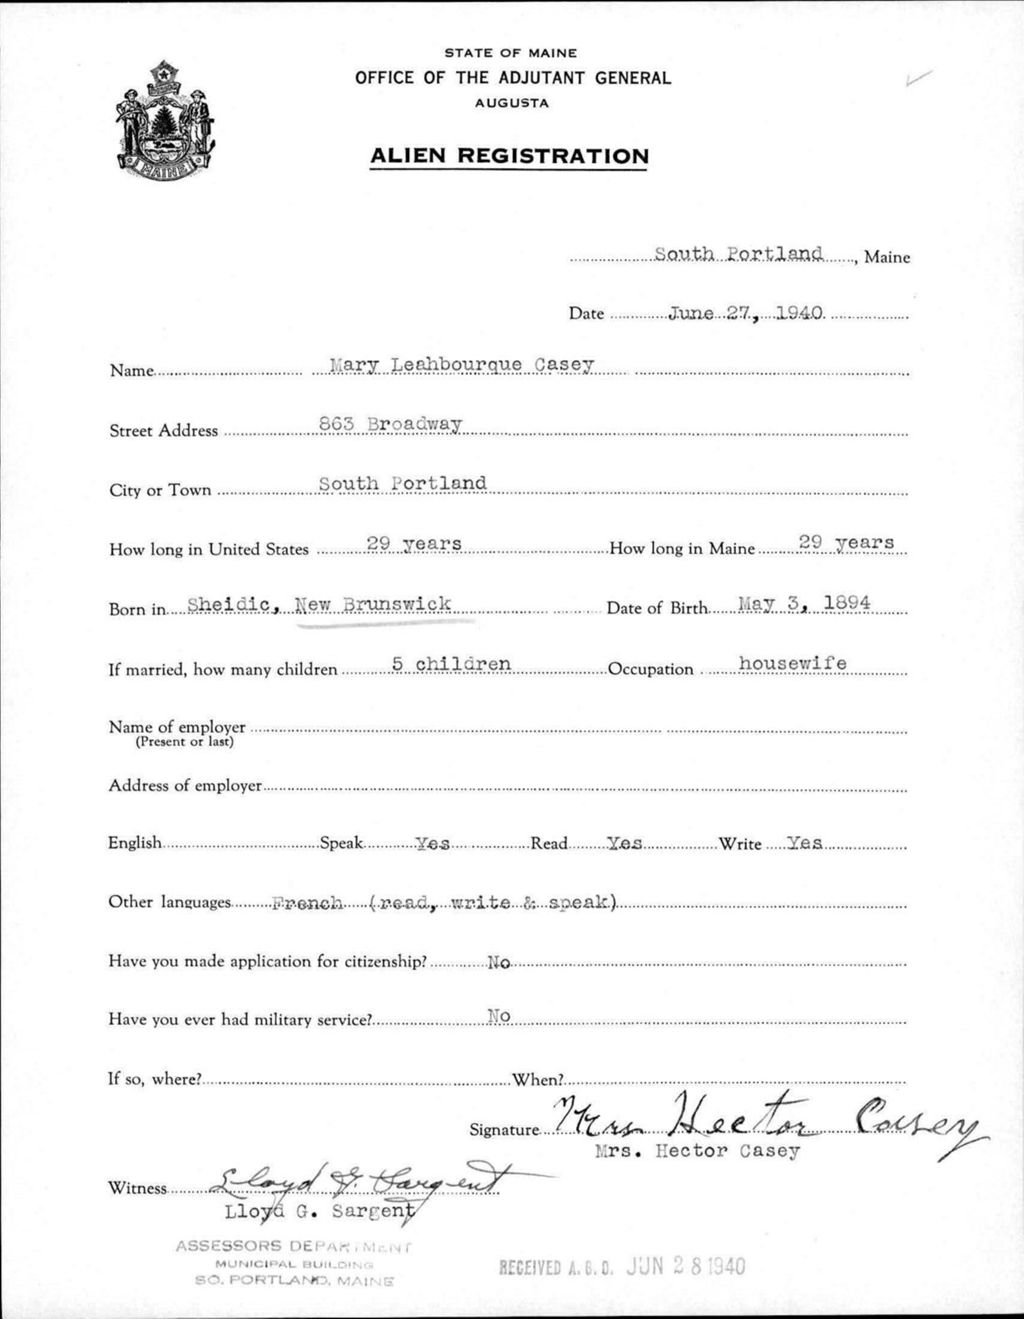 STATE OF MAINE
OFFICE OF THE ADJUTANT GENERAL
AUGUSTA
ALIEN REGISTRATION
MAINE
South Portland, Maine
Date June 27, 1940.
Name Mary Leahbourque Casey
Street Address 863 Broadway
City or Town South Portland
How long in United States 29 years How long in Maine 29 years
Born in Sheidic, New Brunswick Date of Birth May 3, 1894
If married, how many children 5 children Occupation housewife
Name of employer
(Present or last)
Address of employer
English Speak Yes Read Yes Write Yes
Other languages French (read, write & speak)
Have you made application for citizenship? No
Have you ever had military service? No
If so, where? When?
Signature Mrs Hector Casey
Mrs. Hector Casey
Witness Lloyd G. Sargent
Lloyd G. Sargent
ASSESSORS DEPARTMENT
MUNICIPAL BUILDING
SO. PORTLAND, MAINE
RECEIVED A.G.O. JUN 28 1940